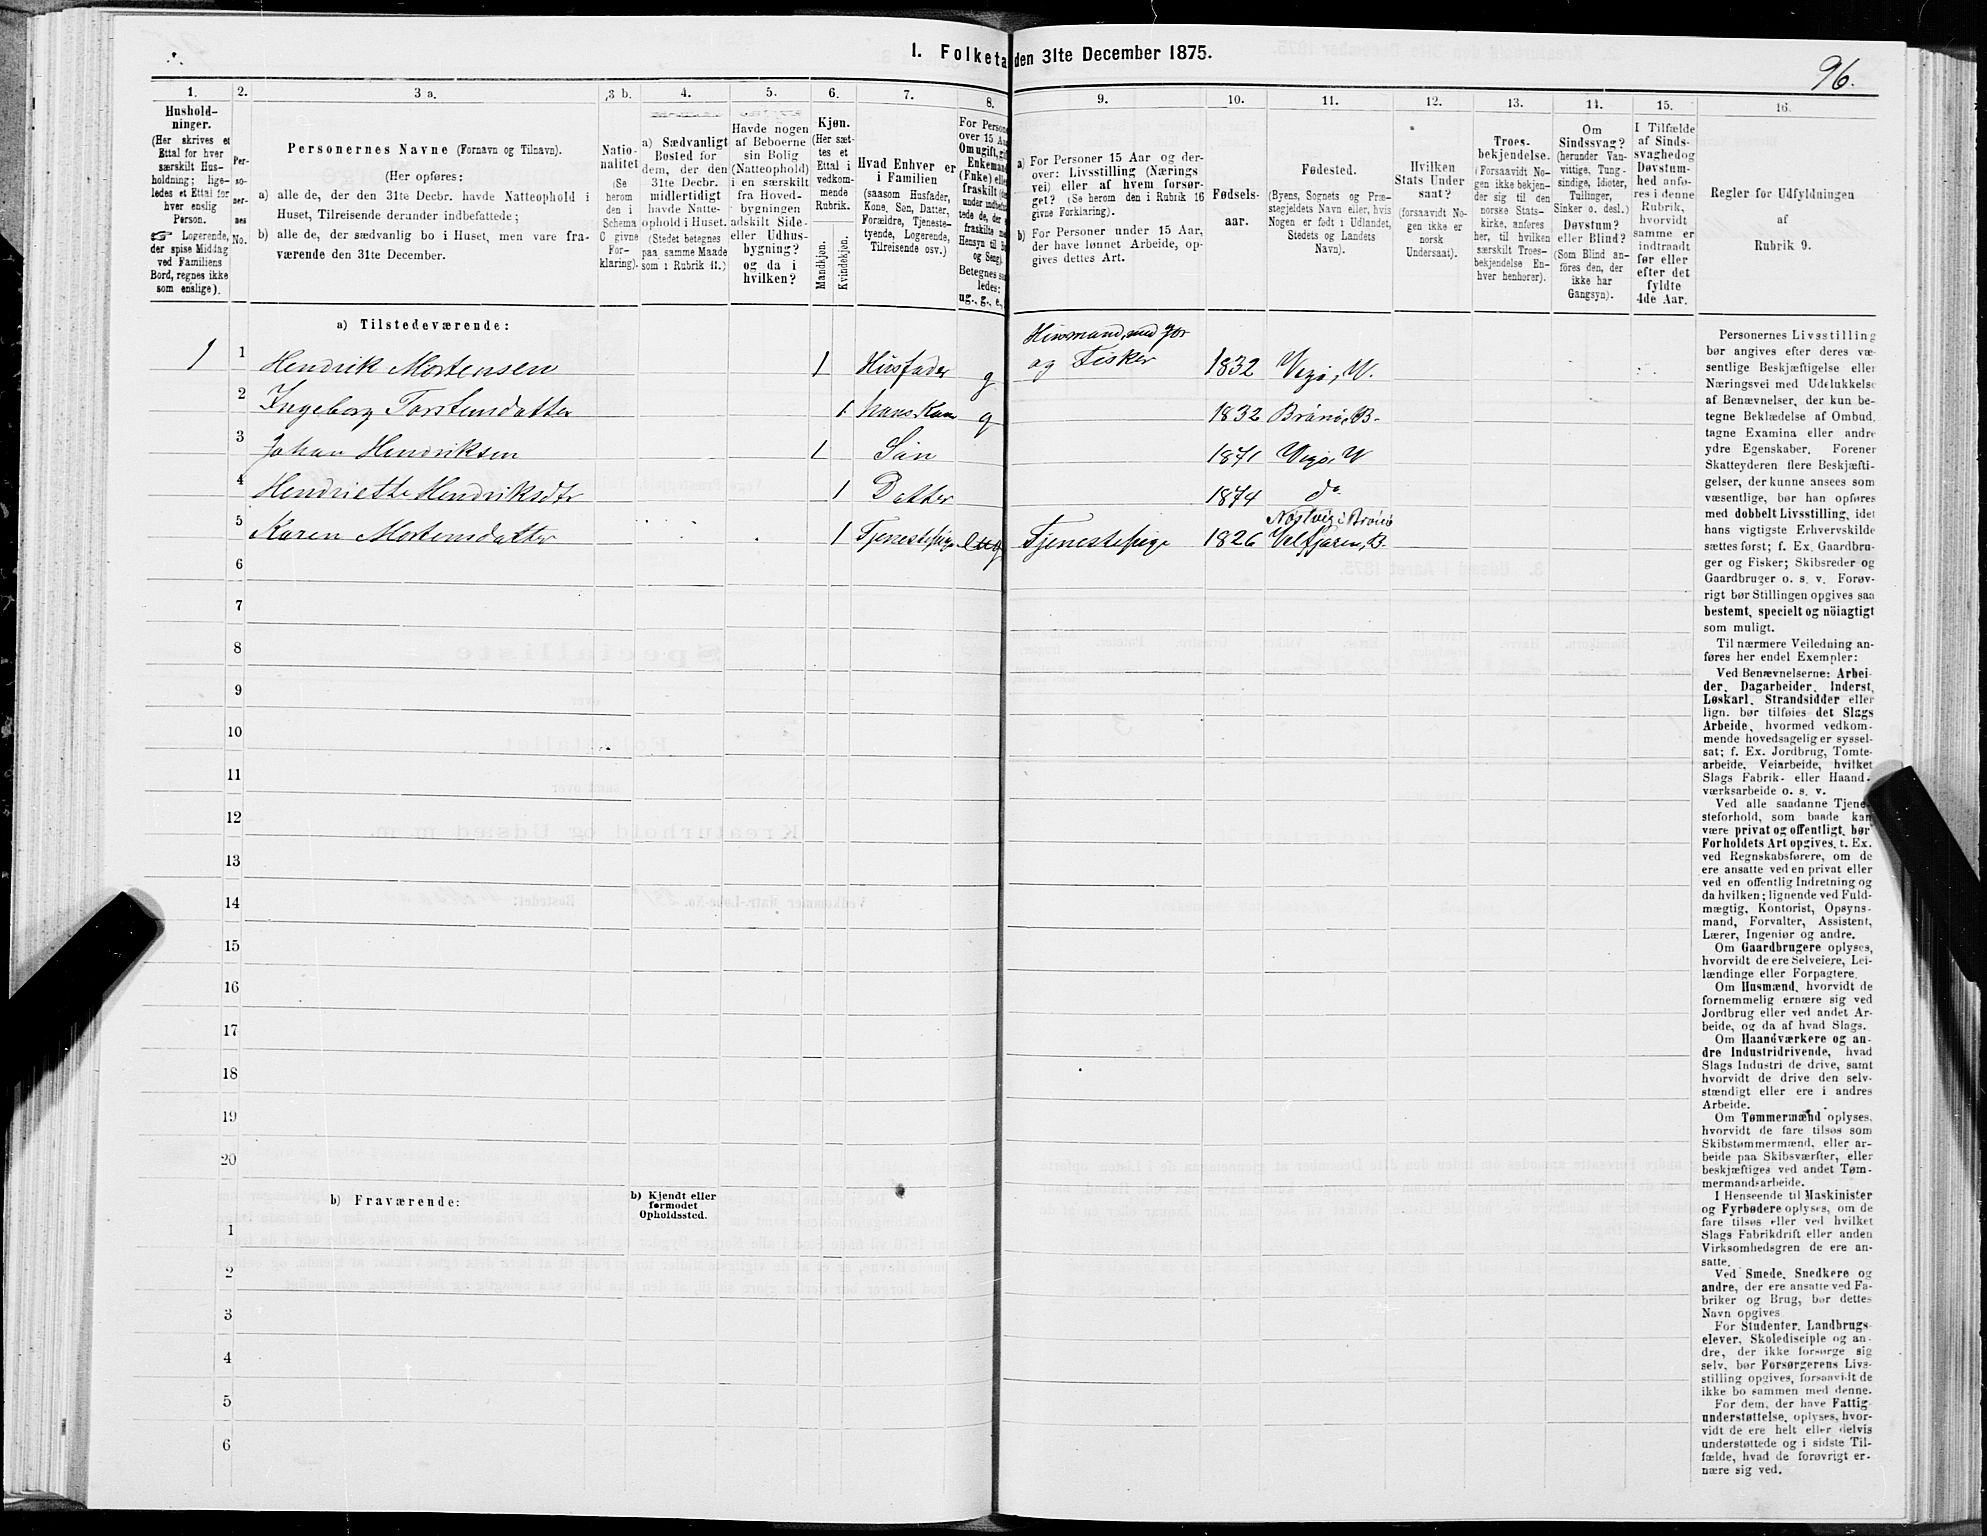 I. Folketa den 31te December 1875.
96.
1. 2. 3 a. 3 b. 4. 5. 6. 7. 8. 9. 10. 11. 12. 13. 14. 15. 16.
Hushold-
ninger.
(Her skrives et
Ettal for hver
særskilt Hus-
holdning; lige-
ledes et Ettal for
hver enslig
Person.
☞ Logerende,
der spise Middag
ved Familiens
Bord, regnes ikke
som enslige).
Per-
so-
ner-
nes
No.
Personernes Navne (Fornavn og Tilnavn).
(Her opføres:
a) alle de, der den 31te Decbr. havde Natteophold i
Huset, Tilreisende derunder indbefattede;
b) alle de, der sædvanlig bo i Huset, men vare fra-
værende den 31te December.
Natio-
nalitet
(Se
herom
den i
Schema
C givne
For-
klaring).
a) Sædvanligt
Bosted for
dem, der den
31te Decbr.
midlertidigt
havde Natte-
ophold i Huset.
(Stedet betegnes
paa samme Maade
som i Rubrik 11.)
Havde nogen
af Beboerne
sin Bolig
(Natteophold)
i en særskilt
fra Hoved-
bygningen
adskilt Side-
eller Udhus-
bygning?
og da i
hvilken?
Kjøn.
(Her sæt-
tes et
Ettal i
vedkom-
mende
Rubrik.
Mandkjøn.
Kvindekjøn.
Hvad Enhver er
i Familien
(saasom Husfader,
Kone, Søn, Datter,
Forældre, Tjeneste-
tyende, Logerende,
Tilreisende osv.)
For Persone
over 15 Aa
Om ugift, gif
Enkemand
(Enke) elle
fraskilt
under indbefat
tede de, der e
fraskilte m
Hensyn til Bo
og Seng).
Betegnes saa
ledes:
ug., g., e.,
a) For Personer 15 Aar og der-
over: Livsstilling (Nærings
vei) eller af hvem forsør-
get? (Se herom den i Rubrik 16
givne Forklaring).
b) For Personer under 15 Aar,
der have lønnet Arbeide, op-
gives dettes Art.
Fødsels-
aar.
Fødested.
(Byens, Sognets og Præ-
stegjeldets Navn eller, hvis
Nogen er født i Udlandet,
Stedets og Landets
Navn).
Hvilken
Stats Under
saat?
(forsaavidt No-
gen ikke er
norsk
Undersaat).
Troes-
bekjendelse.
(Forsaavidt No-
gen ikke bekjen-
der sig til den
norske Stats-
kirke, anføres
her, til hvilken
særskilt Troes-
bekjendelse En-
hver henhører).
Om
Sindssvag?
(herunder Van-
vittige, Tung-
sindige, Idioter,
Tullinger,
Sinker o. desl.)
Døvstum?
eller Blind?
(Som Blind an-
føres den, der
ikke har
Gangsyn).
I Tilfælde
af Sinds-
svaghed og
Døvstum-
hed anfø-
res i denne
Rubrik,
hvorvidt
samme er
indtraadt
før eller
efter det
fyldte
4de Aar.
Regler for Udfyldningen
af
Rubrik 9.
a) Tilstedeværende:
1 1 Hendrik Mortensen 1 Husfader g Huusmand, med Jor og Fisker 1832 Vegø, W.
2 Ingeborg Torstensdatter 1 hans Kone g 1832 Brønø, B.
3 Johan Hendriksen 1 Søn 1871 Vegø, W
4 Hendriette Hendriksdtr 1 Datter 1874 do
5 Karen Mortensdatter 1 Tjenestepige ug Tjenestepige 1826 Velfjoren, B.
6
7
8
9
10
11
12
13
14
15
16
17
18
19
20
b) Fraværende:
b) Kjendt eller
formodet
Opholdssted.
1
2
3
4
5
6
Personernes Livsstilling
bør angives efter deres væ-
sentlige Beskjæftigelse eller
Næringsvei med Udelukkelse
af Benævnelser, der kun be-
tegne Beklædelse af Ombud,
tagne Examina eller andre
ydre Egenskaber. Forener
Skatteyderen flere Beskjæfti-
gelser, der kunne ansees som
væsentlige, bør han opføres
med dobbelt Livsstilling, idet
hans vigtigste Erhvervskilde
sættes først; f. Ex. Gaardbru-
ger og Fisker; Skibsreder og
Gaardbruger o. s. v. Forøv-
rigt bør Stillingen opgives saa
bestemt, specielt og nöiagtigt
som muligt.
Til nærmere Veiledning an-
føres her endel Exempler:
Ved Benævnelserne: Arbei-
der, Dagarbeider, Inderst,
Løskarl, Strandsidder eller
lign. bør tilføies det Slags
Arbeide, hvormed vedkom-
mende hovedsagelig er syssel-
sat; f. Ex. Jordbrug, Tomte-
arbeide, Veiarbeide, hvilket
Slags Fabrik- eller Haand-
værksarbeide o. s. v.
Ved alle saadanne Tjene-
steforhold, som baade kan
være privat og offentligt, bør
Forholdets Art opgives, f. Ex.
ved Regnskabsførere, om de
ere ansatte ved en privat eller
ved en offentlig Indretning og
da hvilken; lignende ved Fuld-
mægtig, Kontorist, Opsyns-
mand, Forvalter, Assistent,
Lærer, Ingeniør og andre.
Om Gaardbrugere oplyses,
hvorvidt de ere Selveiere, Lei-
lændinge eller Forpagtere.
Om Husmænd, hvorvidt de
fornemmelig ernære sig ved
Jordbrug eller ved andet Ar-
beide, og da af hvad Slags.
Om Haandværkere og an-
dre Industridrivende, hvad
Slags Industri de drive, samt
hvorvidt de drive den selv-
stændigt eller ere i andres
Arbeide.
Om Tømmermænd oplyses,
hvorvidt de fare tilsøs som
Skibstømmermænd, eller ar-
beide paa Skibsværfter, eller
beskjæftiges ved andet Tøm-
mermandsarbeide.
I Henseende til Maskinister
og Fyrbødere oplyses, om de
fare tilsøs eller ved hvilket
Slags Fabrikdrift eller anden
Virksomhedsgren de ere an-
satte.
Ved Smede, Snedkere og
andre, der ere ansatte ved Fa-
briker og Brug, bør dettes
Navn opgives
For Studenter, Landbrugs-
elever, Skoledisciple og an-
dre, der ikke forsørge sig
selv, bør Forsørgerens Livs-
stilling opgives, forsaavidt de
ikke bo sammen med denne.
For dem, der have Fattig-
understøttelse, oplyses, hvor-
vidt de ere helt eller delvis
understøttede og i sidste Til-
fælde, hvad de forøvrigt er-
nære sig ved.